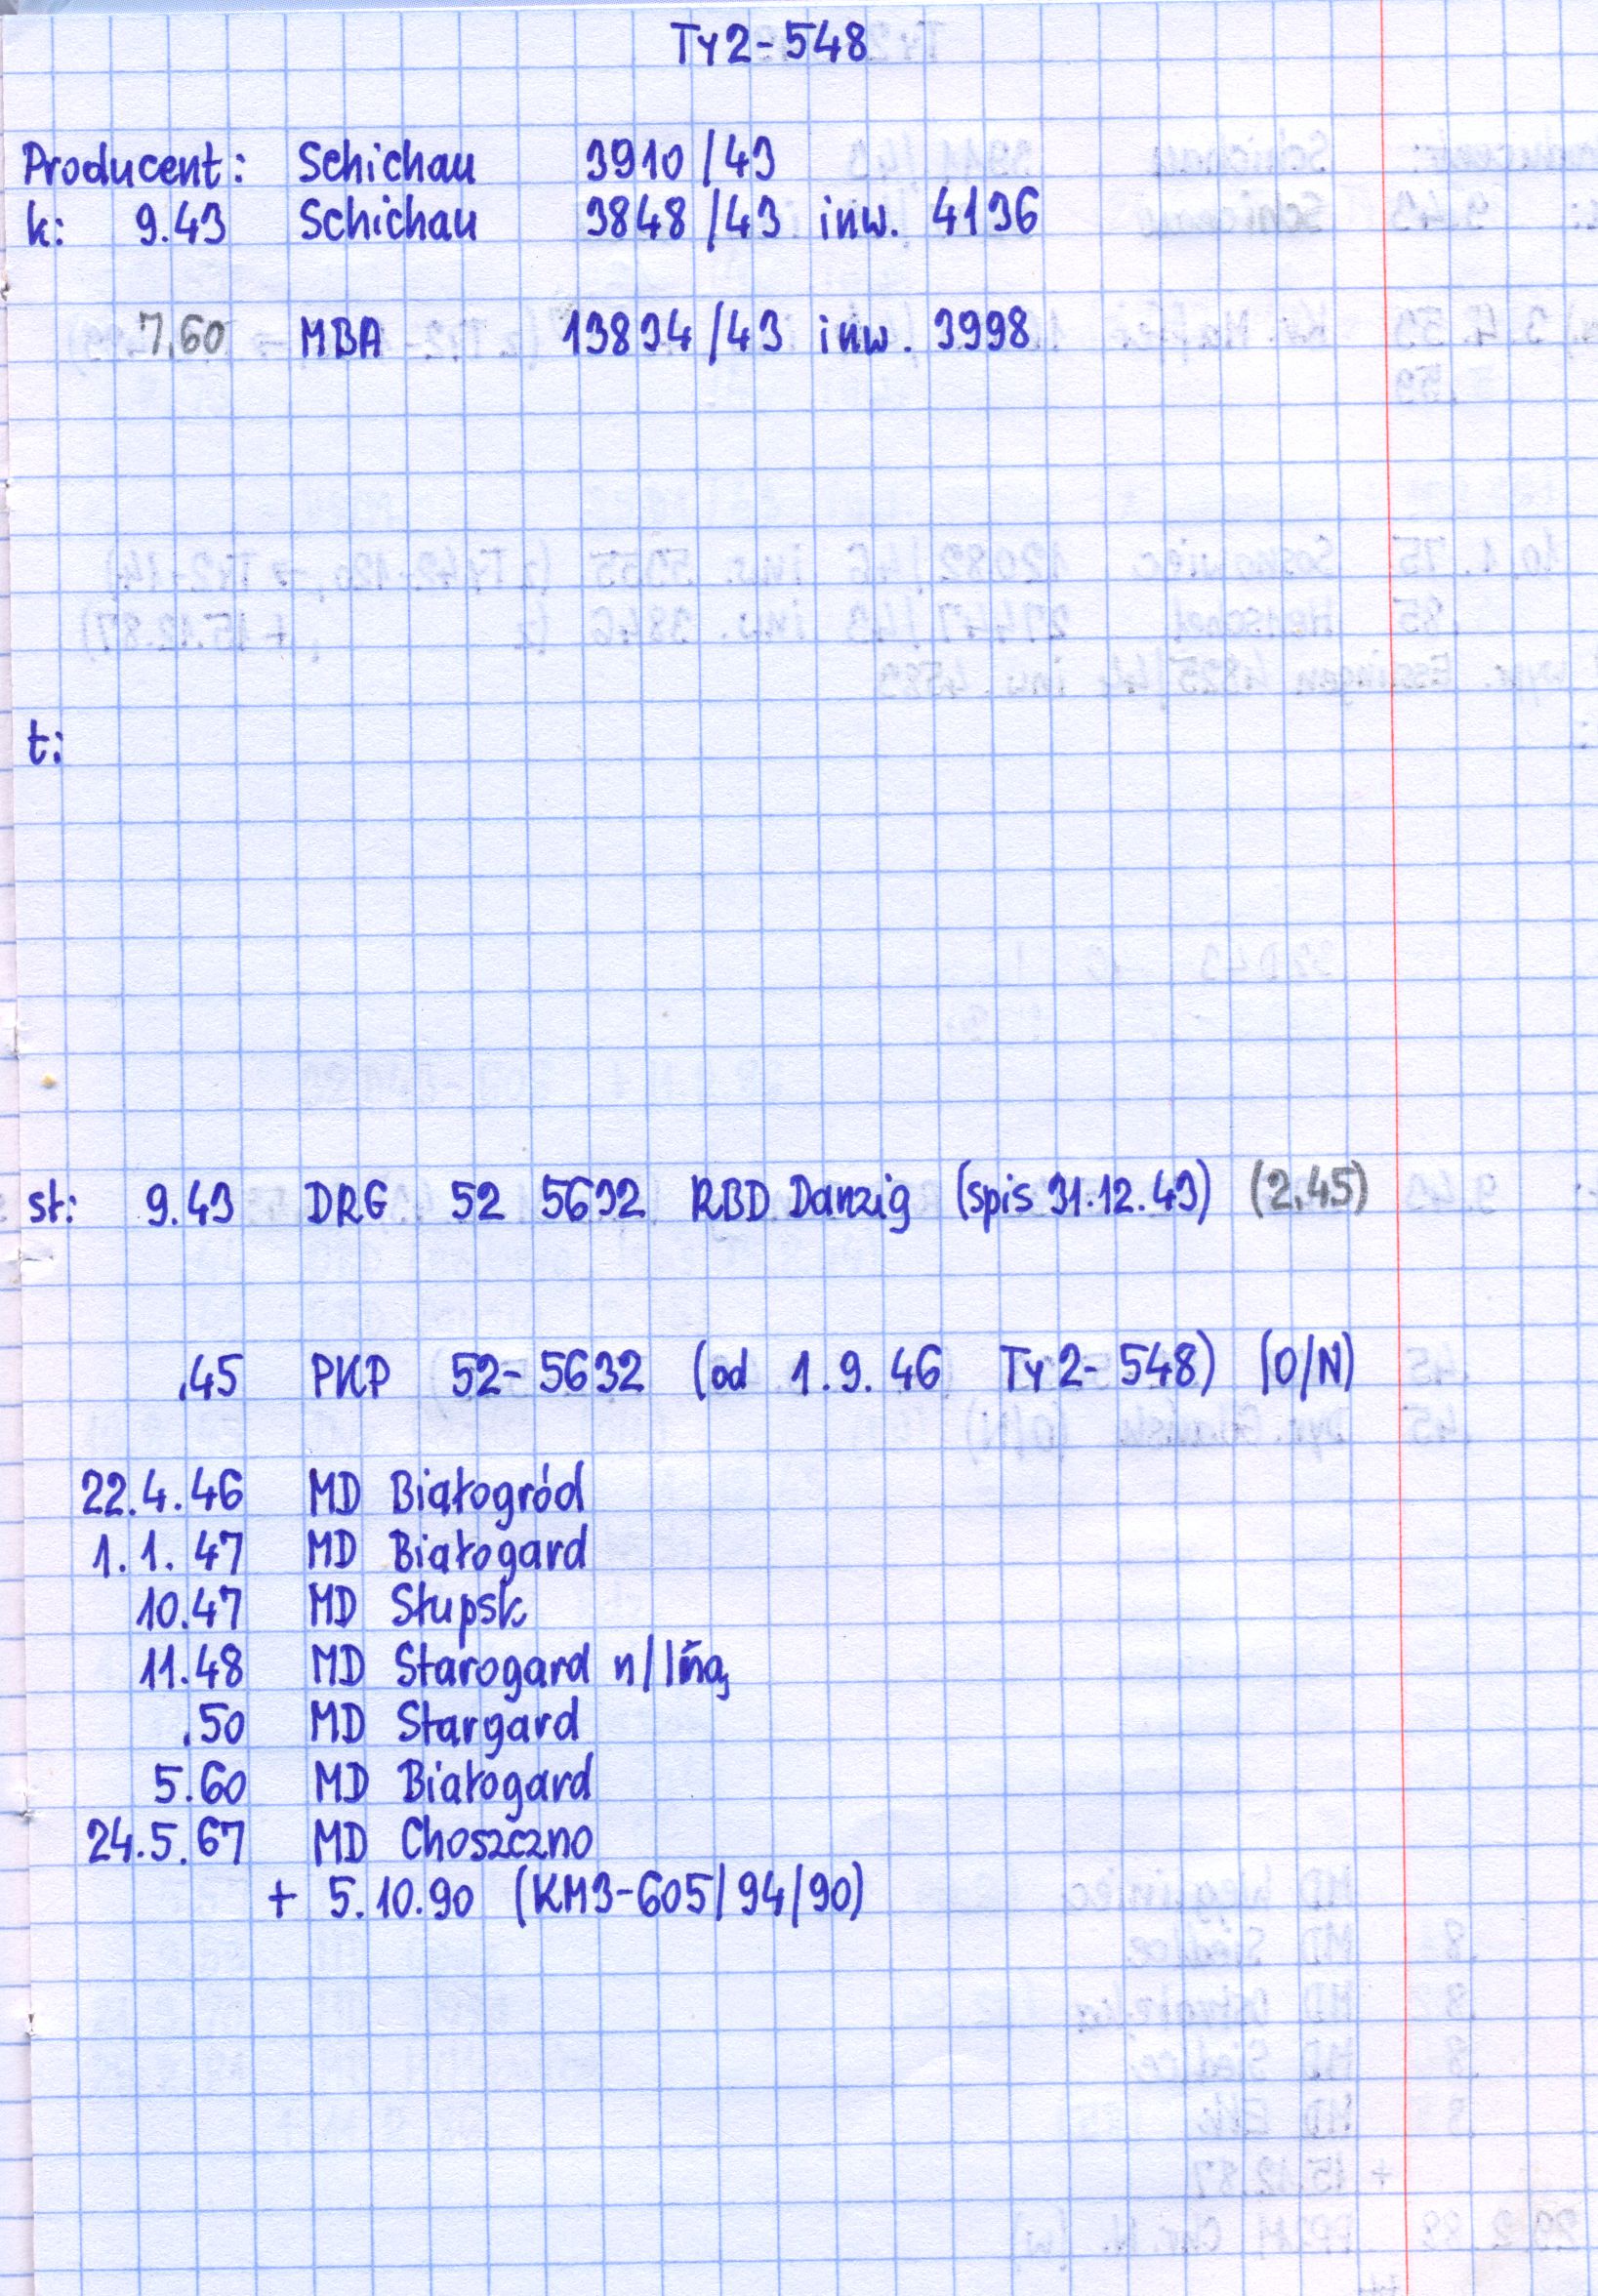 Ty2-548
Producent: Schichau 3910/43
k: 9.43 Schichau 3848/43 inw. 4136
7.60 MBA 13834/43 inw. 3998
t:
st: 9.43 DRG 52 5632 RBD Danzig (spis 31.12.43) (2.45)
.45 PKP 52-5632 (od 1.9.46 Ty2-548) (O/N)
22.4.46 MD Białogród
1.1.47 MD Białogard
10.47 MD Słupsk
11.48 MD Starogard n/Iną
.50 MD Stargard
5.60 MD Białogard
24.5.67 MD Choszczno
+ 5.10.90 (KM3-605/94/90)